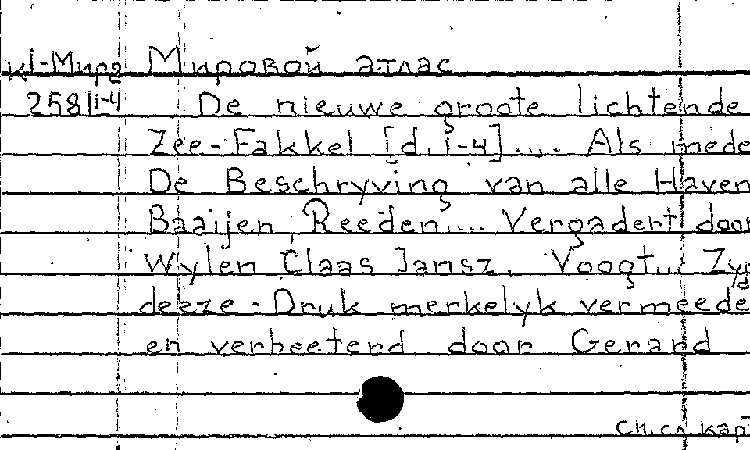 кl-Мира Мировой атлас
2581 1-4 De nieuwe groote lichtende
Zee-Fakkel [d. 1-4]... Als mede
De Beschryving van alle Haven
Baaijen, Reeden... Vergadert door
Wylen Claas Jansz. Voogt...
deeze Druk merkelyk vermeede
en verbeeterd door Gerard
См. сл. кар